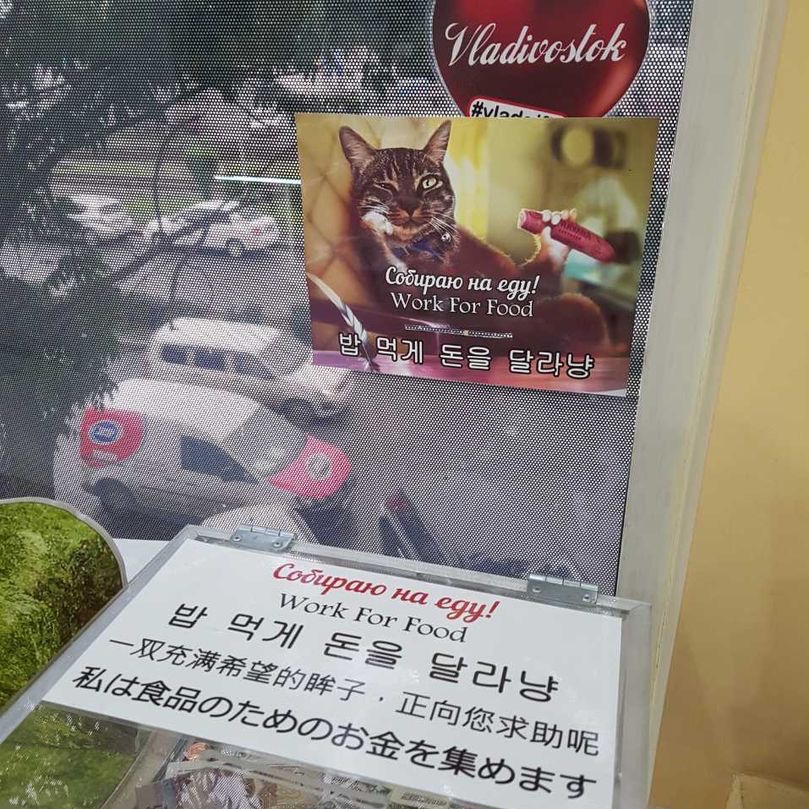 Vladivostok
Собираю на еду!
Work For Food
밥 먹게 돈을 달라냥
Собираю на еду!
Work For Food
밥 먹게 돈을 달라냥
一双充满希望的眸子，正向您求助呢
私は食品のためのお金を集めます